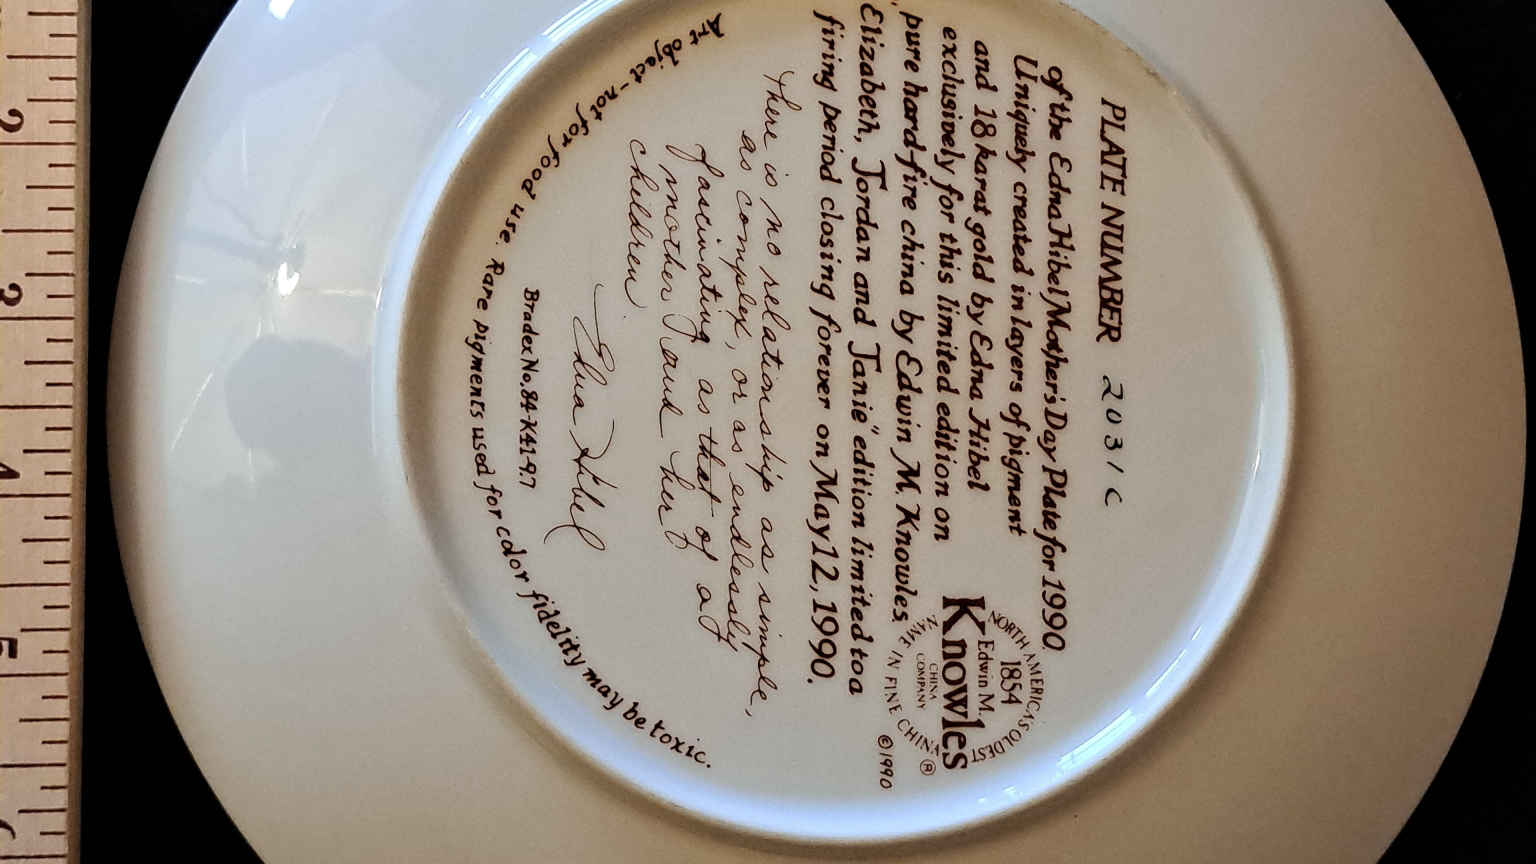 PLATE NUMBER 2031C
of the Edna Hibel Mother's Day Plate for 1990.
Uniquely created in layers of pigment
and 18 karat gold by Edna Hibel
exclusively for this limited edition on
pure hard-fire china by Edwin M. Knowles,
Elizabeth, Jordan and Janie" edition limited to a
firing period closing forever on May 12, 1990.
NORTH AMERICA'S OLDEST
1854
Edwin M.
Knowles
CHINA
COMPANY
NAME IN FINE CHINA ®
©1990
There is no relationship as simple,
as complex, or as endlessly
fascinating as that of a
mother and her
children
Edna Hibel
Bradex No. 84-K41-9.7
Art object - not for food use. Rare pigments used for color fidelity may be toxic.
2
3
4
5